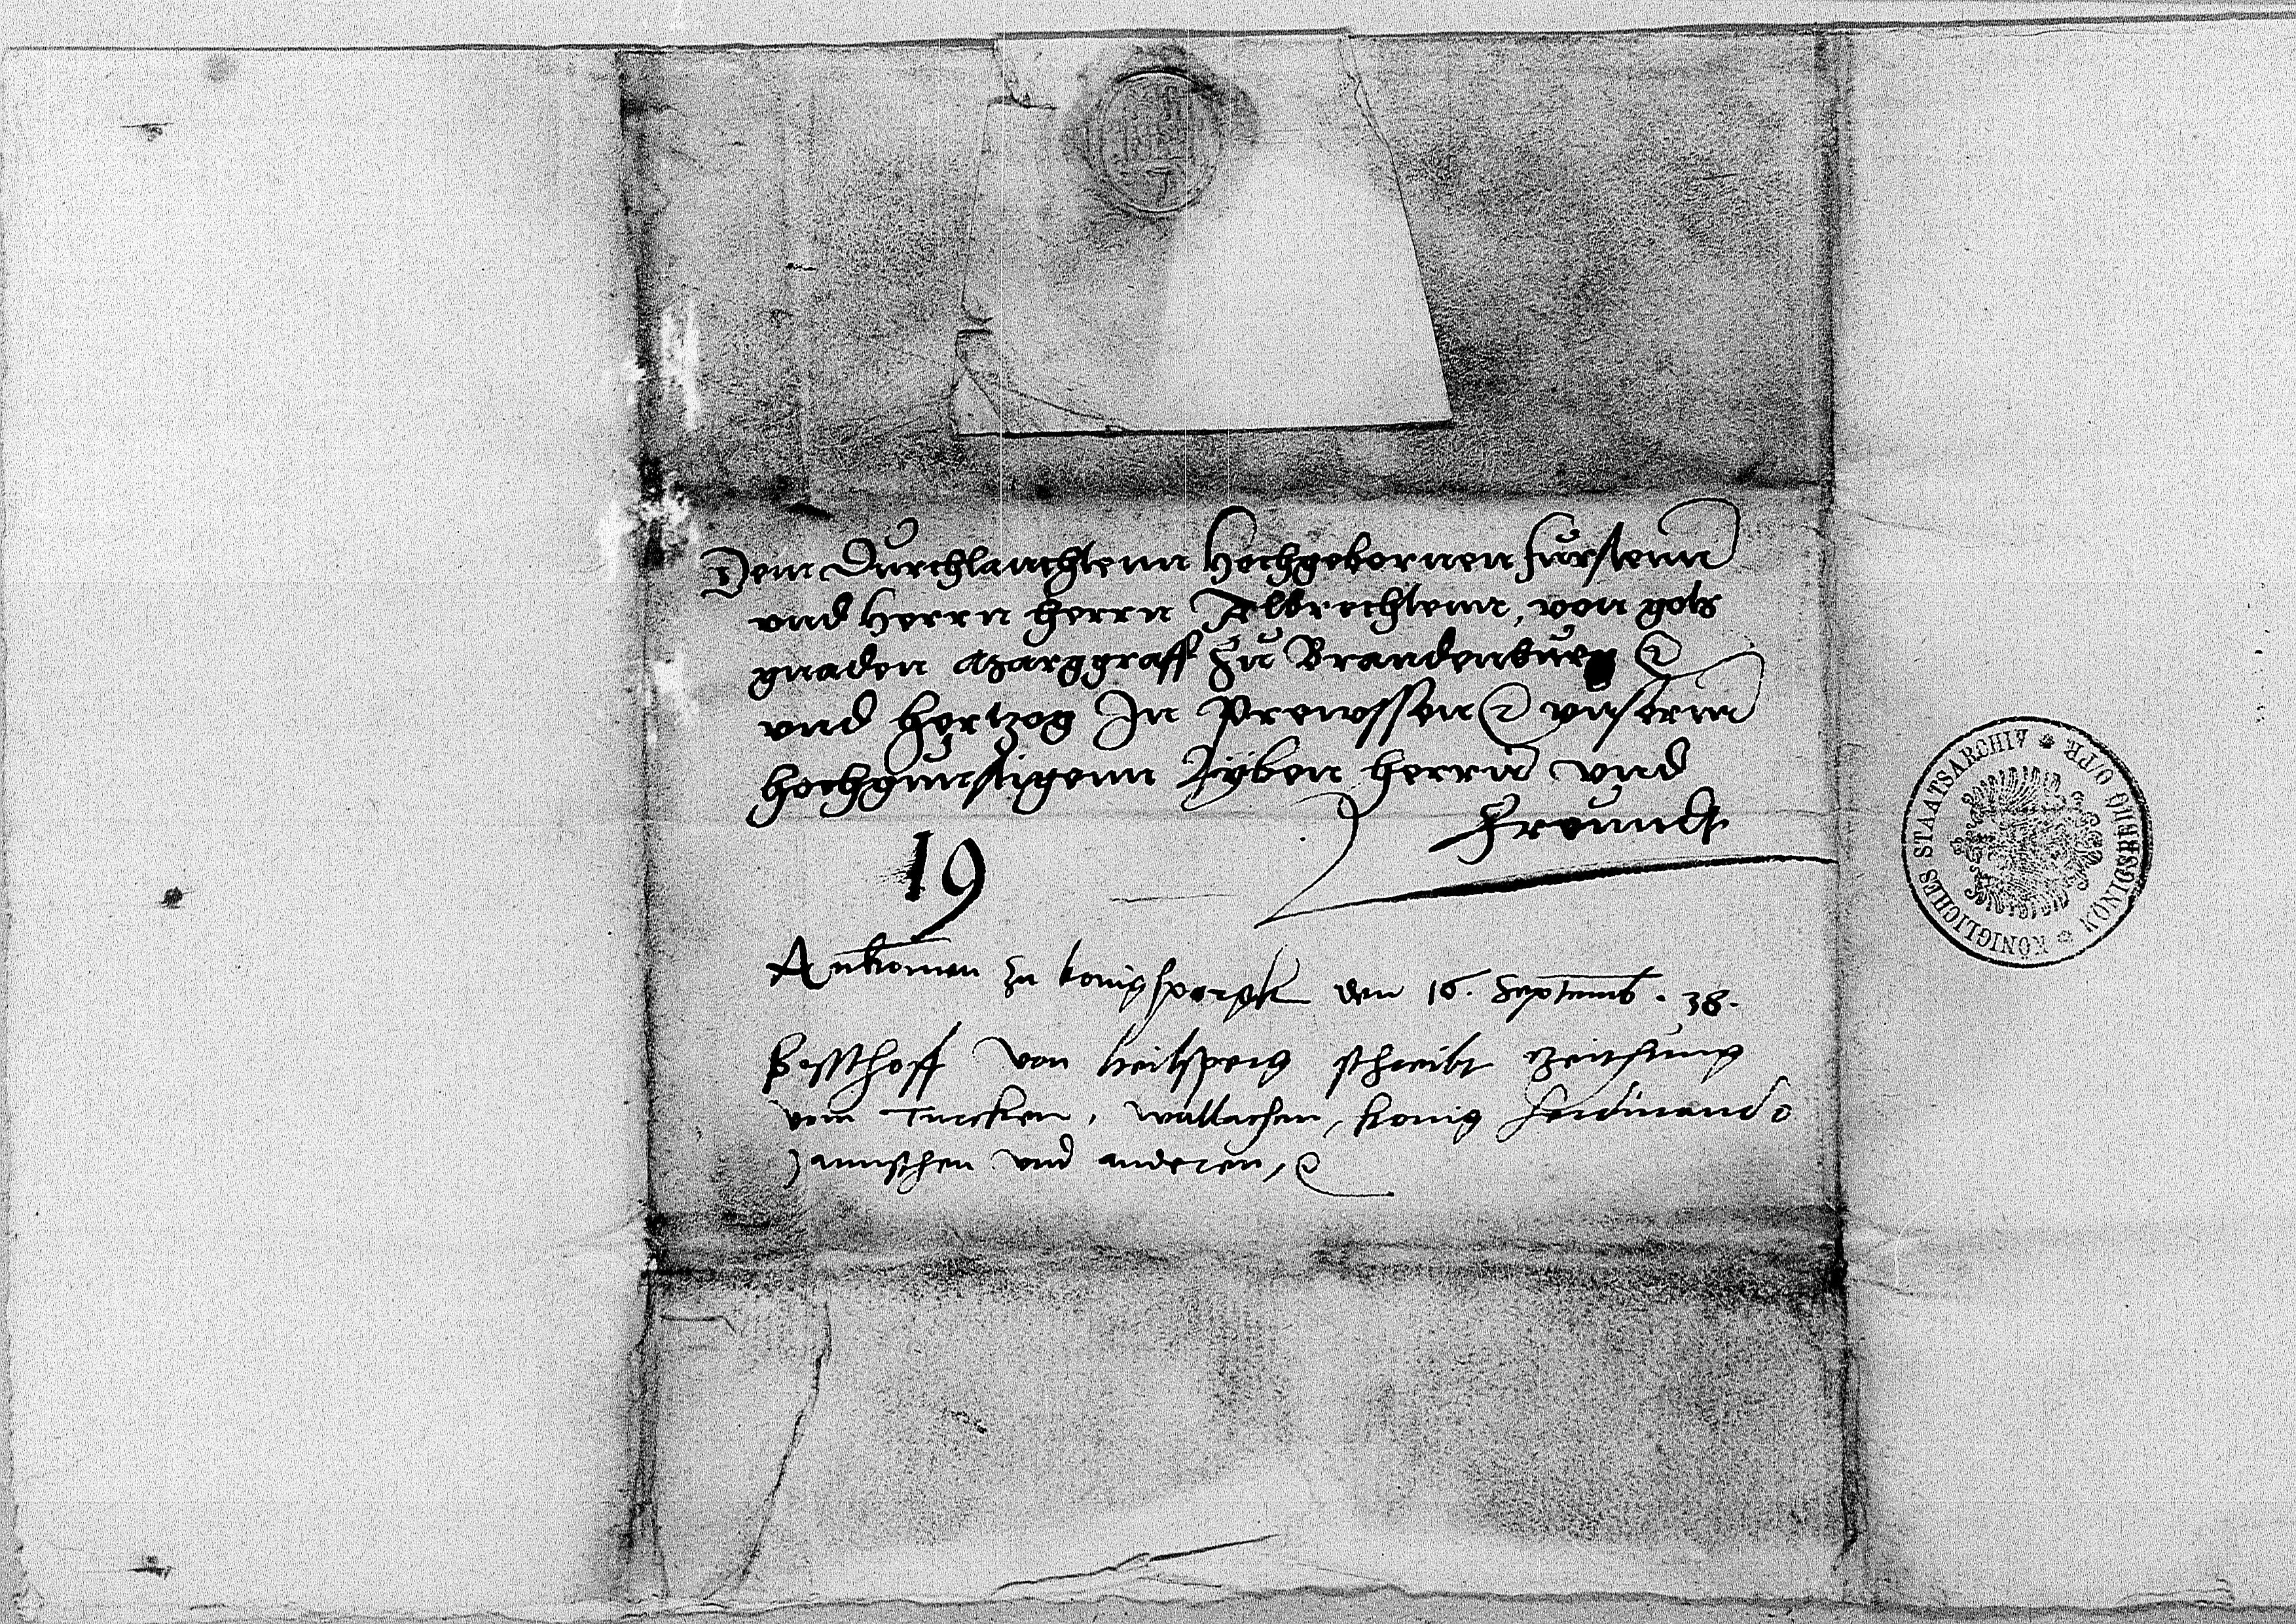 Dem Durchlauchtenn Hochgebornen furstenn
vnd Herrn herrn Albrechtenn, von gots
gnaden Marggraff zu Brandenburg
vnd hertzog In Prewssen vnserm
hochgunstigenn lyben herrn vnd
Freundt
19
Ankomen zu konigspergk den 16. Septemb. 38.
Bisschoff von heilsperg schreibt zeittung
vom Turcken, wallachen, konig Ferdinando
vnd anderen,
KÖNIGLICHES STAATSARCHIV * KÖNIGSBERG O/PR. *